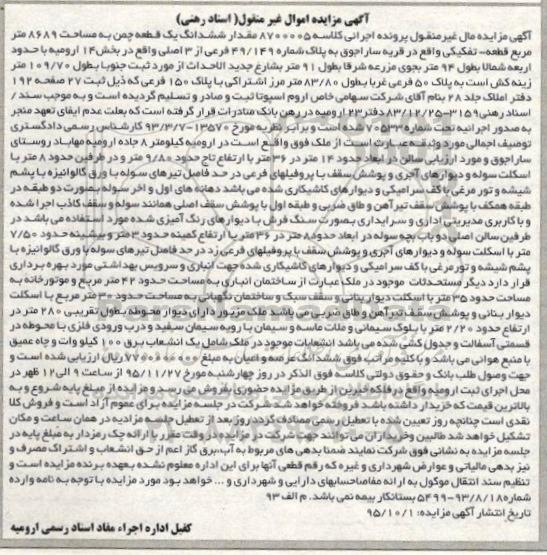 آگهی مزایده اموال غیر منقول( اسناد رهنی)
آگهی مزایده مال غیرمنقول پرونده اجرائی کلاسه ۸۷۰۰۰۰۵ مقدار ششدانگ یک قطعه چمن به مساحت ۸۶۸۹ متر
مربع قطعه- تفکیکی واقع در قریه ساراجوق به پلاک شماره ۴۹/۱۴۹ فرعی از ۳ اصلی واقع در بخش۱۴ ارومیه با حدود
اربعه شمالا بطول ۹۴ متر بجوی مزرعه شرقا بطول ۹۱ متر بشارع جدید الاحداث از مورد ثبت جنوبا بطول ۱۰۹/۷۰ متر
زینه کش است به پلاک ۵۰ فرعی غربا بطول ۸۳/۸۰ متر مرز اشتراکی با پلاک ۱۵۰ فرعی که ذیل ثبت ۲۷ صفحه ۱۹۲
دفتر املاک جلد ۲۸ بنام آقای شرکت سهامی خاص اروم اسپوتا ثبت و صادر و تسلیم گردیده است و به موجب سند /
اسناد رهنی۳۱۵۹-۸۳/۱۲/۲۵ دفتر۲۳ ارومیه در رهن بانک صادرات قرار گرفته است که بعلت عدم ایفای تعهد منجر
به صدور اجرائیه تحت شماره ۷۰۵۳۳ شده است و برابر نظریه مورخ ۱۳۵۷۰-۹۳/۳/۷ کارشناس رسمی دادگستری
توصیف اجمالی مورد وثیقه عبارت است از ملک فوق واقع است در ارومیه کیلومتر ۸ جاده ارومیه مهاباد روستای
ساراجوق و مورد ارزیابی سالن در ابعاد حدود ۱۴ متر در ۳۶ متر با ارتفاع تاج حدود ۹/۸۰ متر و در طرفین حدود ۸ متر با
اسکلت سوله و دیوارهای آجری و پوشش سقف با پروفیلهای فرعی در حد فاصل تیرهای سوله با ورق گالوانیزه با پشم
شیشه و تور مرغی با کف سرامیکی و دیوارهای کاشیکاری شده می باشد دهانه های اول و آخر سوله بصورت دو طبقه در
طبقه همکف با پوشش سقف تیرآهن و طاق ضربی و طبقه اول با پوشش سقف اصلی همانند سوله و سقف کاذب اجرا شده
و با کاربری مدیریتی اداری و سرایداری بصورت سنگ فرش با دیوارهای رنگ آمیزی شده مورد استفاده می باشد در
طرفین سالن اصلی دو باب بچه سوله در ابعاد حدود۸ متر در ۳۶ متر با ارتفاع کمینه حدود ۳ متر و بیشینه حدود ۷/۵۰
متر با اسکلت سوله و دیوارهای آجری و پوشش سقف با پروفیلهای فرعی زد در حد فاصل تیرهای سوله با ورق گالوانیزه با
پشم شیشه و تورمرغی با کف سرامیکی و دیوارهای کاشیکاری شده جهت انباری و سرویس بهداشتی مورد بهره برداری
قرار دارد دیگر مستحدثات موجود در ملک عبارت از ساختمان انباری به مساحت حدود ۴۲ متر مربع و موتورخانه به
مساحت حدود ۳۵ متر با اسکلت دیوار بنائی و سقف سبک و ساختمان نگهبانی به مساحت حدود ۳۰ متر مربع با اسکلت
دیوار بنائی و پوشش سقف تیرآهن و طاق ضربی می باشد ملک مزبور دارای دیوار محوطه بطول تقریبی ۲۸۰ متر در
ارتفاع حدود ۲/۲۰ متر با بلوک سیمانی و ملات ماسه و سیمان با رویه سیمان سفید و درب ورودی فلزی با محوطه در
قسمتی آسفالت و جدول کشی شده می باشد انشعابات موجود در ملک شامل یک انشعاب برق ۱۰۰ کیلو وات و چاه عمیق
با منبع هوائی می باشد و با کلیه مراتب فوق ششدانگ عرصه و اعیان به مبلغ ریال ارزیابی شده است و
جهت وصول طلب بانک و حقوق دولتی کلاسه فوق الذکر در روز چهارشنبه مورخ ۹۵/۱۱/۲۷ از ساعت ۹ الی ۱۲ ظهر در
محل اجرای ثبت ارومیه واقع در فلکه خیرین از طریق مزایده حضوری بفروش می رسد و مزایده از مبلغ پایه شروع و به
بالاترین قیمت که خریدار داشته باشد فروخته خواهد شد شرکت در جلسه مزایده برای عموم آزاد است و فروش کلا
نقدی است چنانچه روز تعیین شده با تعطیل رسمی مصادف گردد روز بعد از تعطیل جلسه مزایده در همان ساعت و مکان
تشکیل خواهد شد طالبین و خریداران می توانند جهت شرکت در مزایده در وقت مقرر با ارائه چک رمزدار به مبلغ پایه در
جلسه مزایده به نشانی فوق شرکت نمایند ضمنا بدهی های مربوط به آب،برق گاز اعم از حق انشعاب و اشتراک مصرف و
نیز بدهی مالیاتی و عوارض شهرداری و غیره که رقم قطعی آنها برای این اداره معلوم نشده بعهده برنده مزایده است و
تنظیم سند انتقال موکول به ارائه مفاصاحسابهای دارایی و شهرداری و ... خواهد بود مورد مزایده با توجه به نامه وارده
شماره۵۴۹۹-۹۳/۸/۱۸ بستانکار بیمه نمی باشد. م الف ۹۳
تاریخ انتشار آگهی مزایده: ۹۵/۱۰/۱
کفیل اداره اجراء مفاد اسناد رسمی ارومیه